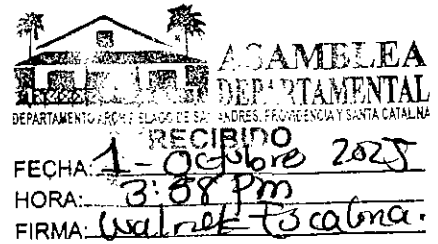 ASAMBLEA
DEPARTAMENTAL
DEPARTAMENTO ARCHIPIELAGO DE SAN ANDRES, PROVIDENCIA Y SANTA CATALINA
RECIBIDO
FECHA: 1 - Octubre 2025
HORA: 3:58 Pm
FIRMA: